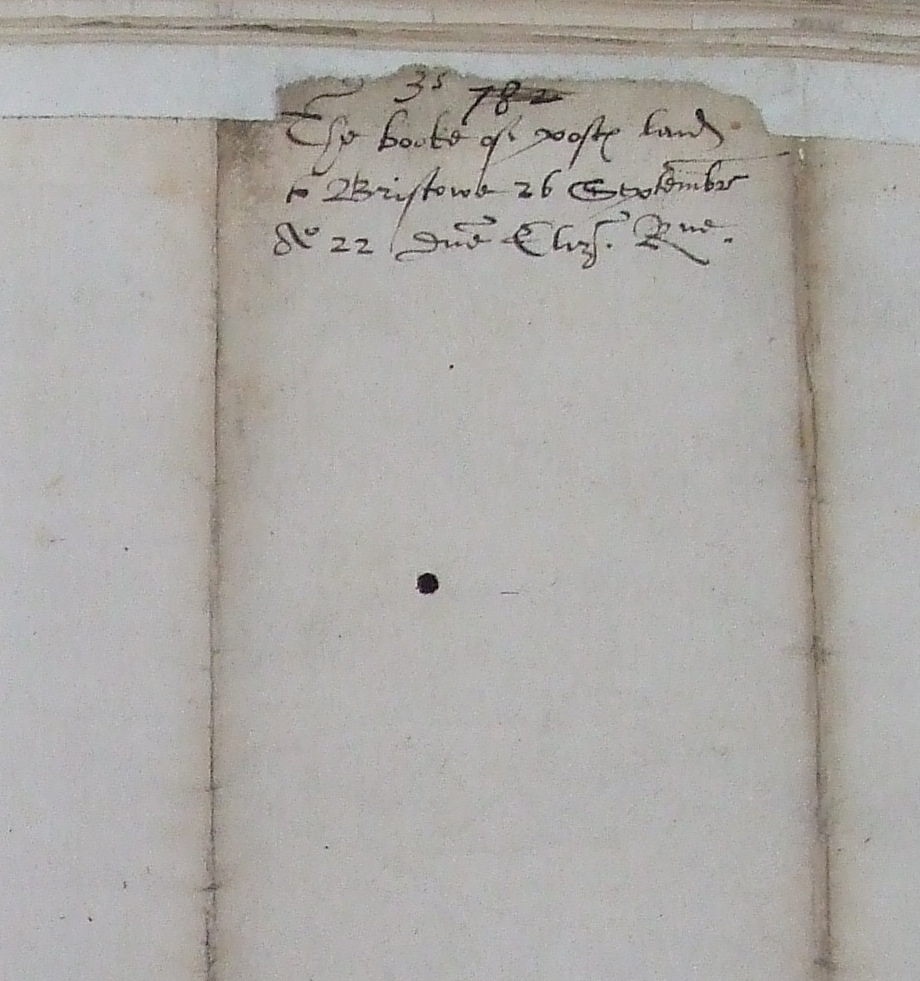 3s 782
The booke of postes laid
to Bristowe 26 Septembr
Ao 22 Dne Eliz. Rne.